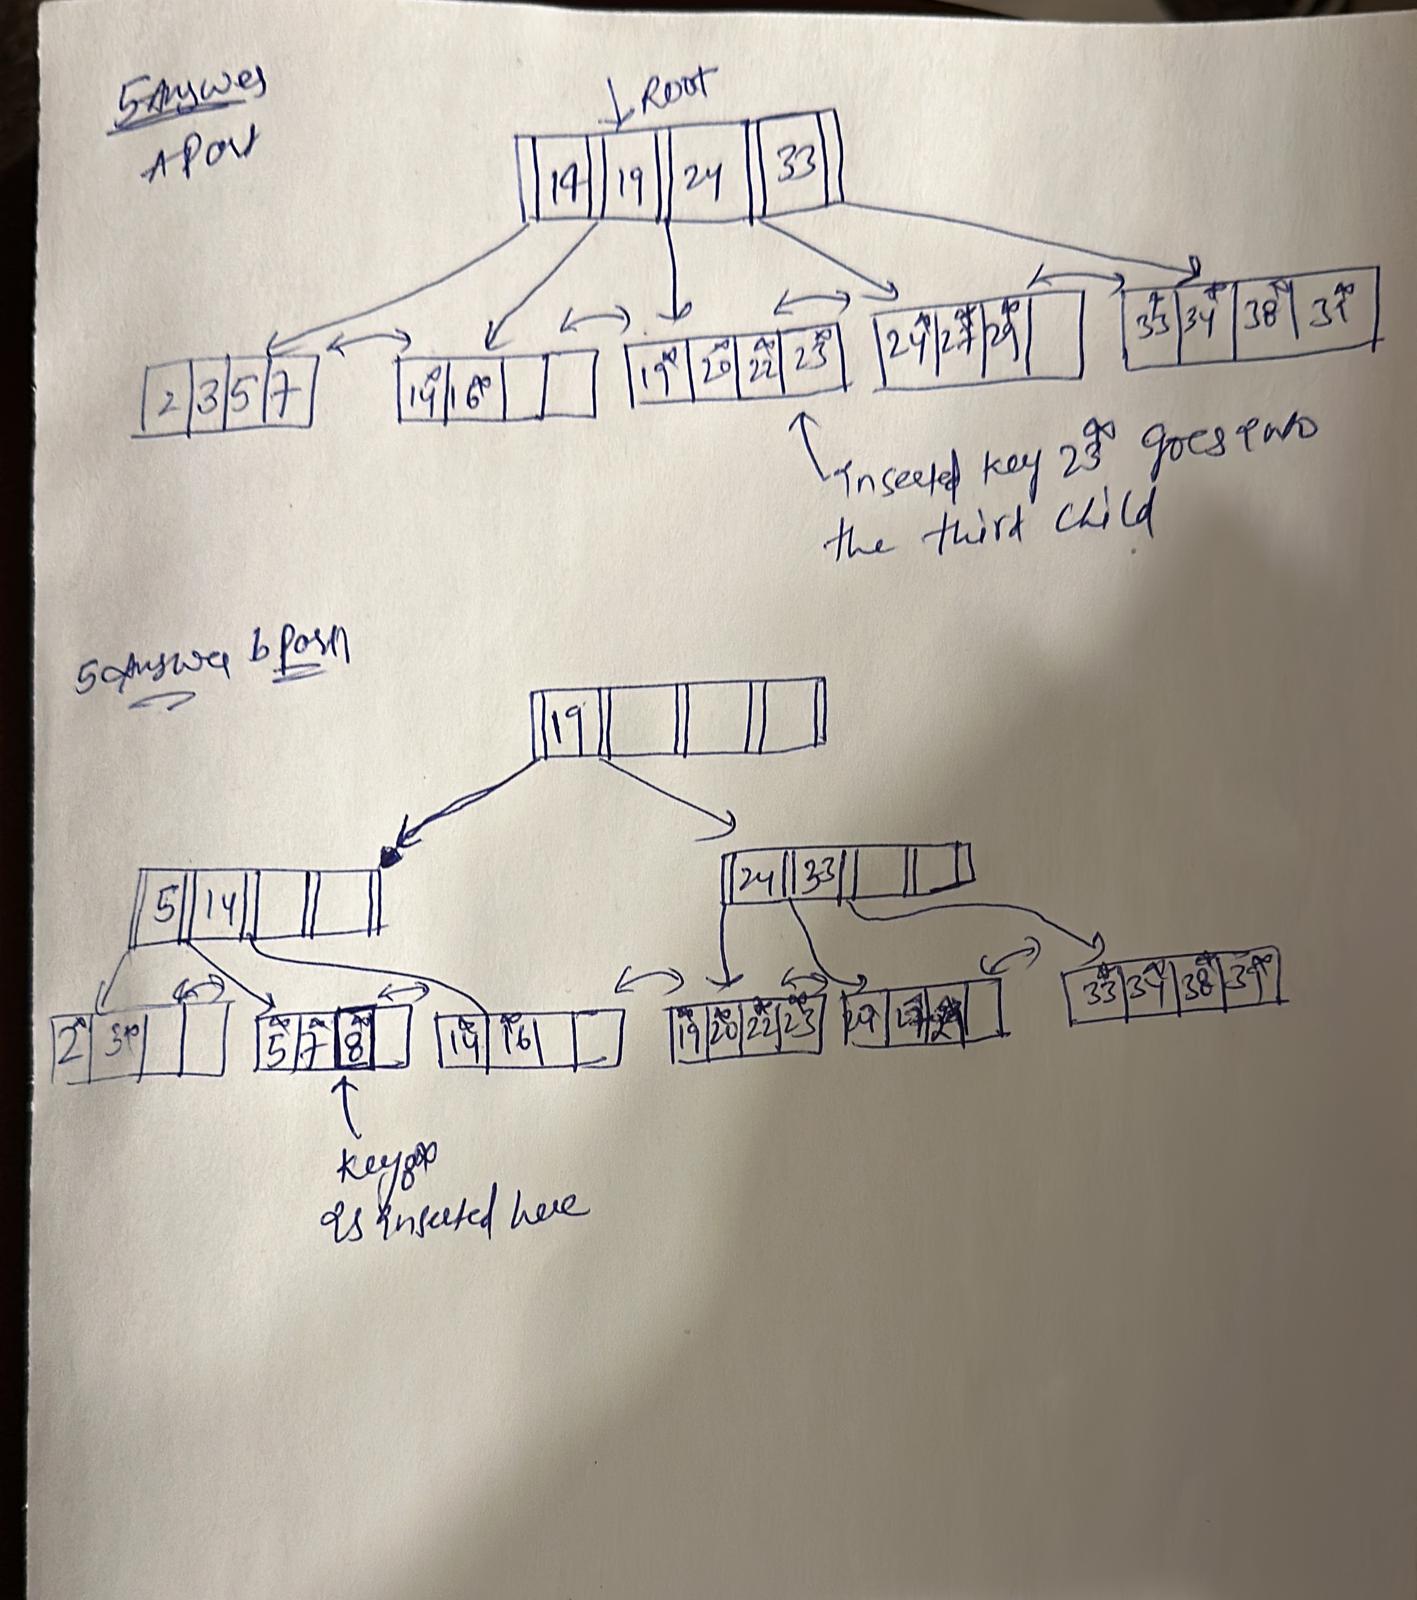 5 Answer
A Part
↓ Root
14 19 24 33
2 3 5 7
14* 16*
19* 20* 22* 23*
24* 27* 29*
33* 34* 38* 39*
Inserted key 23* goes into
the third child
5 Answer b Part
19
5 14
24 33
2* 3*
5* 7* 8*
14* 16*
19* 20* 22* 23*
33* 34* 38* 39*
key 8*
is inserted here